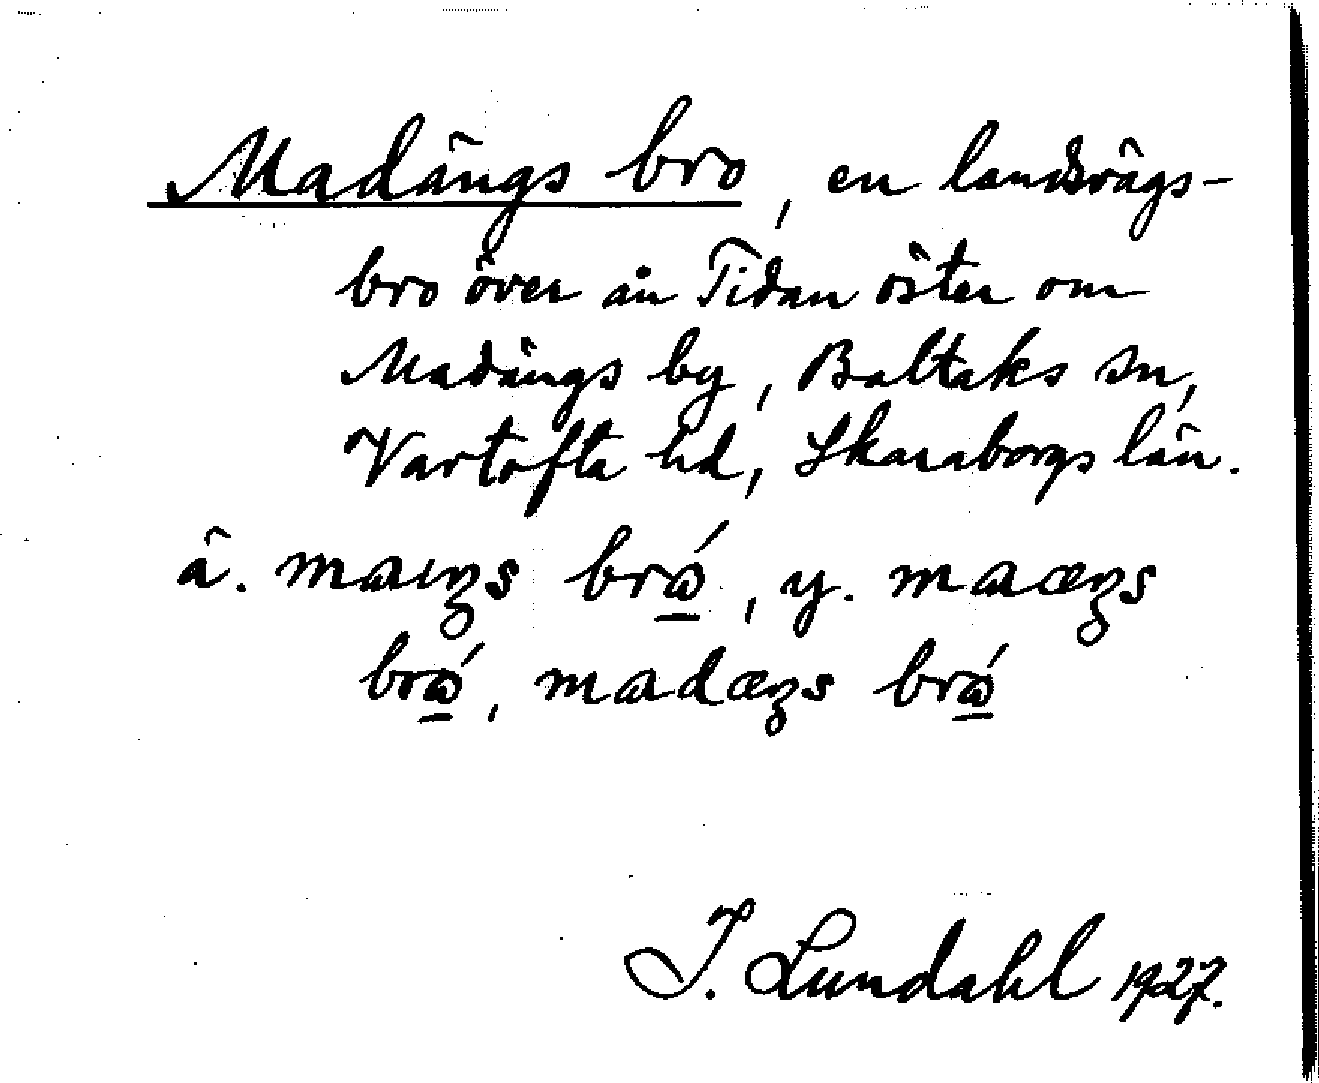 Madängs bro, en landsvägs-
bro över ån Tidan öster om
Madängs by, Baltaks sn,
Vartofta hd, Skaraborgs län.
ä. maɩꞑs brɷ́, y. maæꞑs
brɷ́, madæꞑs brɷ́
I. Lundahl 1927.